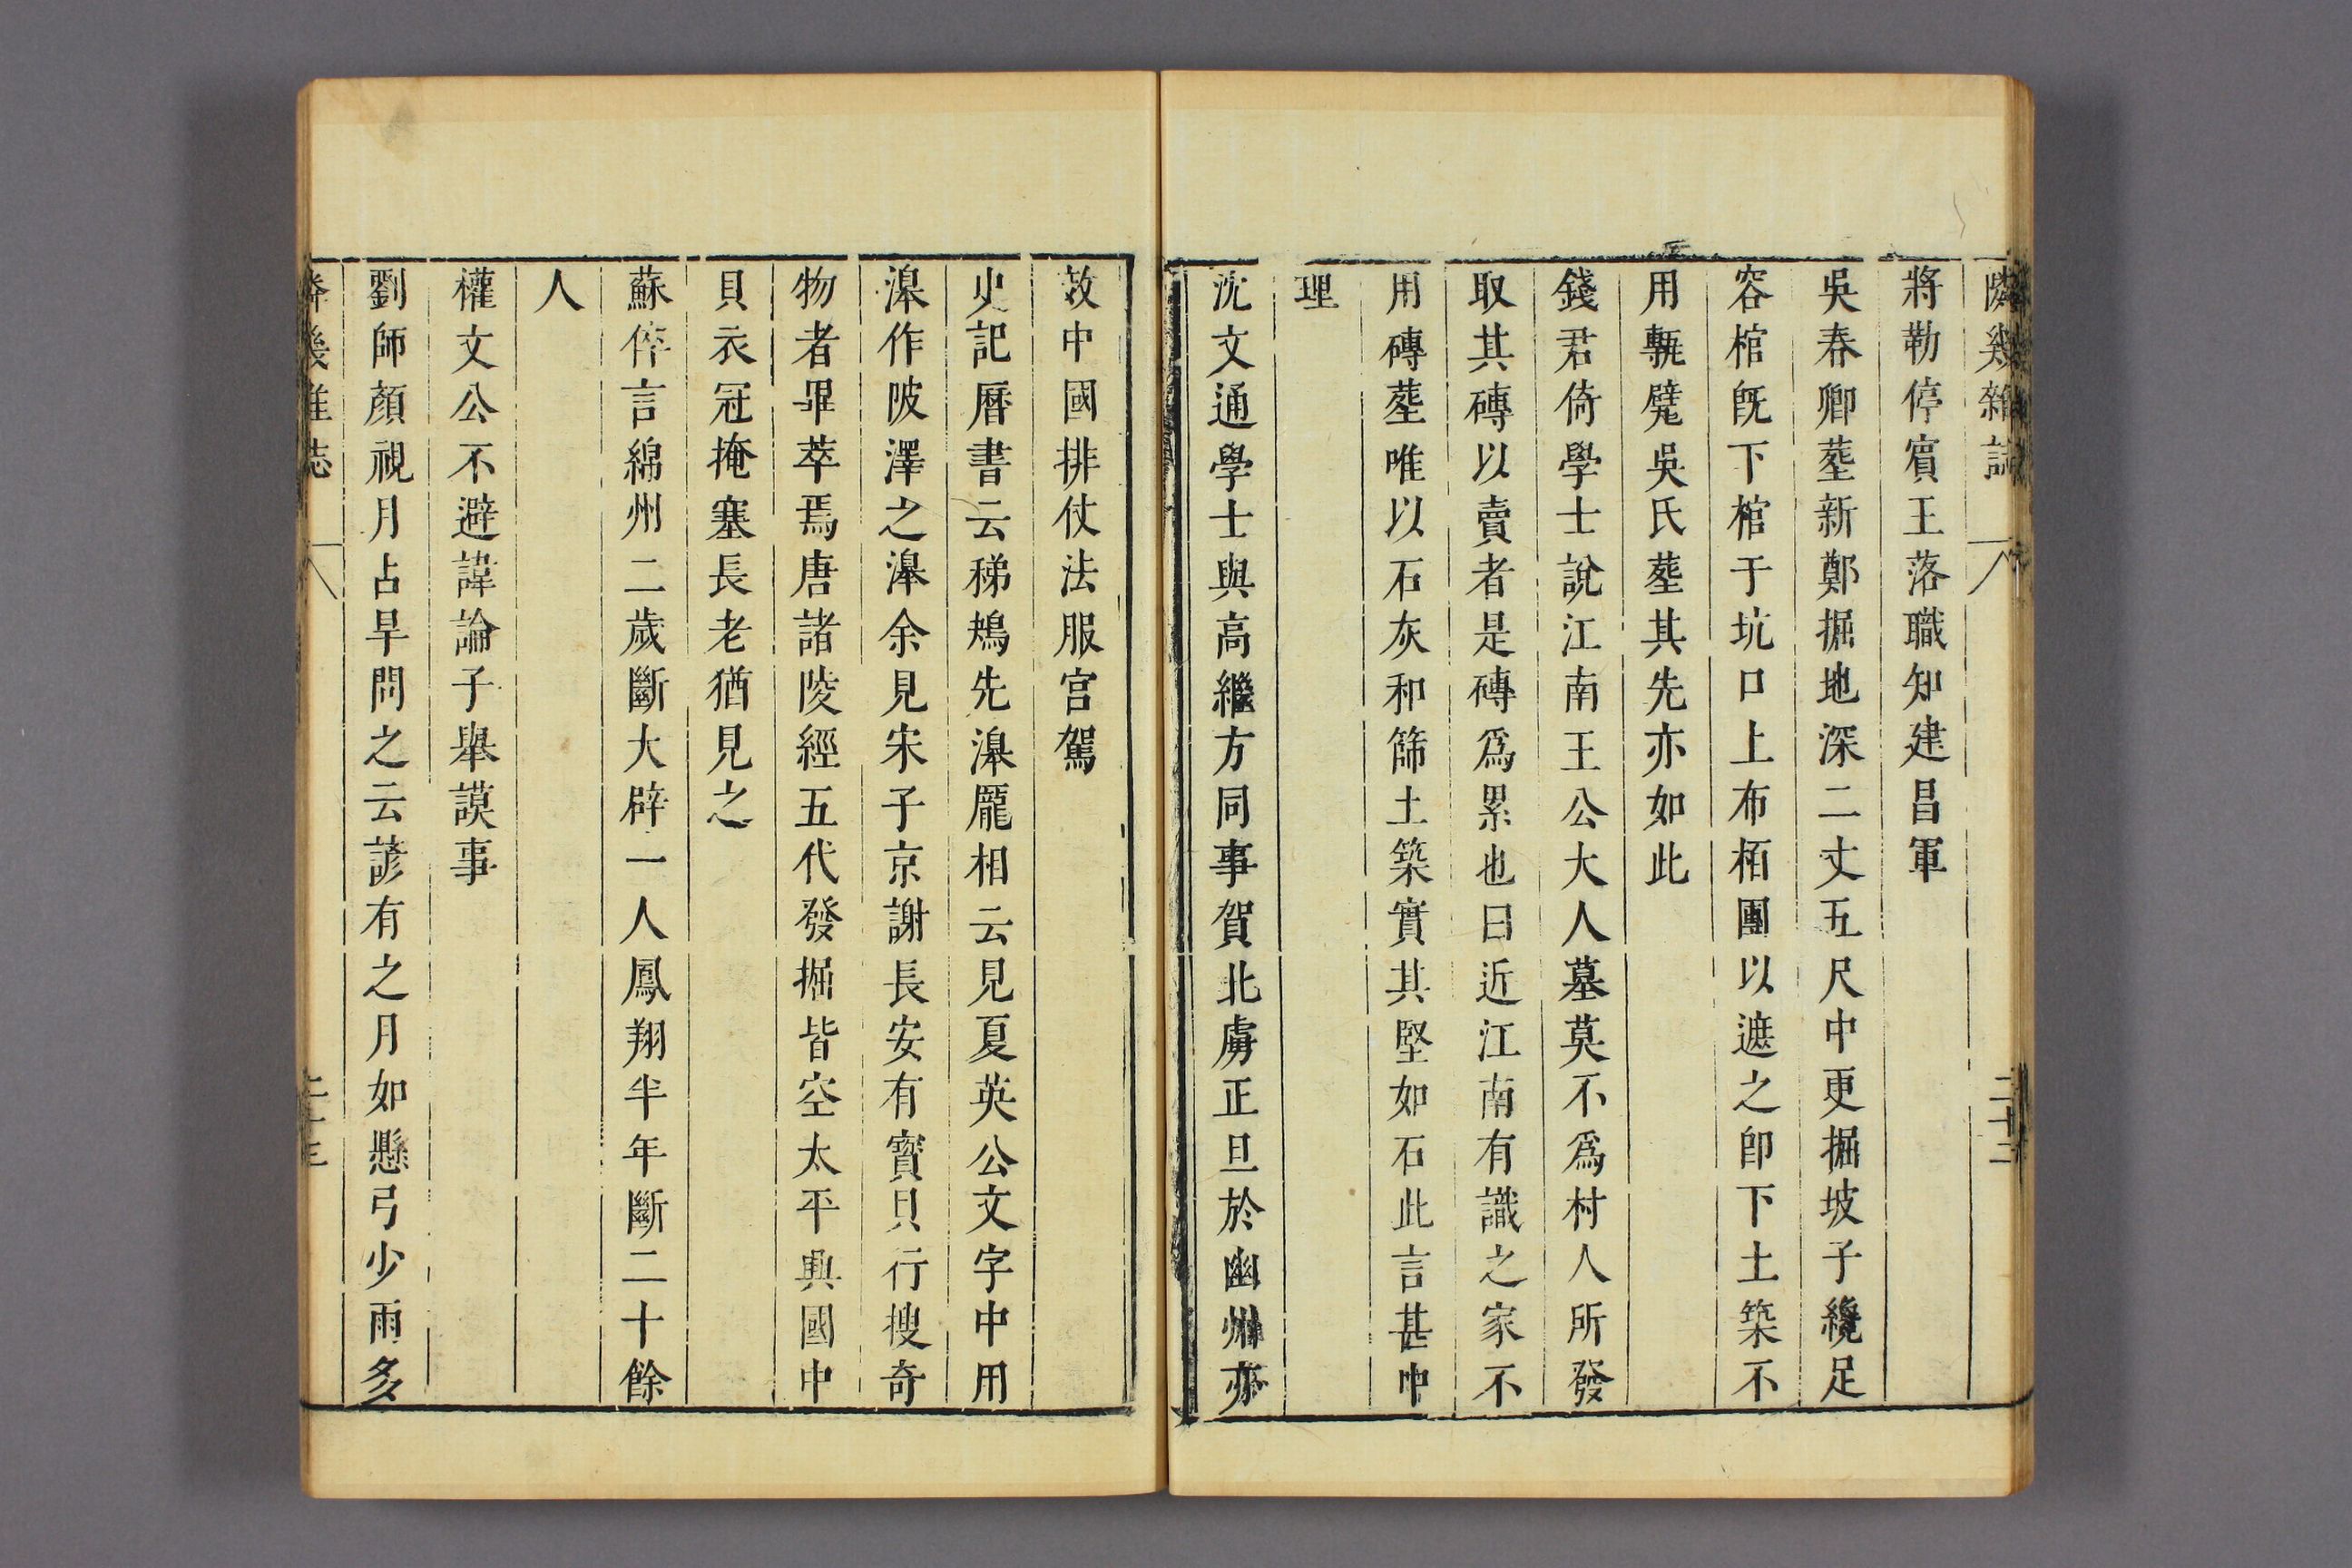 隣幾雜誌 二十二
將勒停賔王落職知建昌軍
吳春卿塟新鄭掘地深二丈五尺中更掘坡子纔足
容棺旣下棺于坑口上布栢團以遮之卽下土築不
用甎甓吳氏塟其先亦如此
錢君倚學士說江南王公大人墓莫不爲村人所發
取其磚以賣者是磚爲累也曰近江南有識之家不
用磚塟唯以石灰和篩土築實其堅如石此言甚中
理
沈文通學士與高繼方同事賀北虜正旦於幽州亦
敎中國排仗法服宫駕
史記曆書云稊鴂先滜龎相云見夏英公文字中用
滜作陂澤之滜余見宋子京謝長安有寳貝行搜奇
物者畢萃焉唐諸陵經五代發掘皆空太平興國中
貝衣冠掩塞長老猶見之
蘇倅言綿州二歲斷大辟一人鳳翔半年斷二十餘
人
權文公不避諱論子舉謨事
劉師顏視月占旱問之云諺有之月如懸弓少雨多
隣幾雜誌 二十二